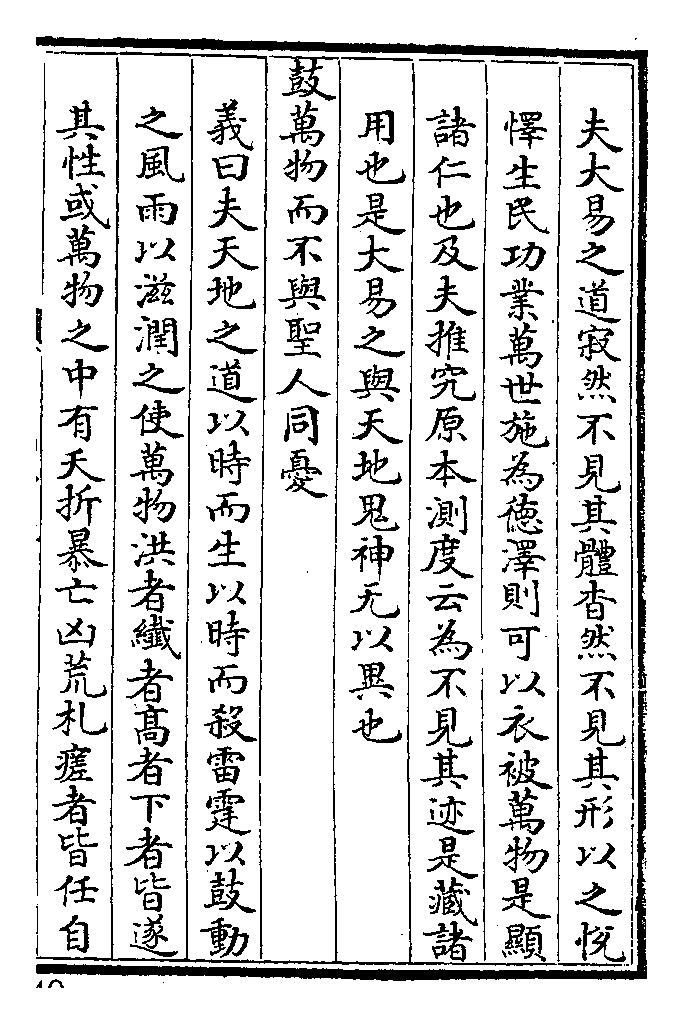 夫大易之道寂然不見其體杳然不見其形以之恱
懌生民功業萬世施為徳澤則可以衣被萬物是顯
諸仁也及夫推究原本測度云為不見其迹是藏諸
用也是大易之與天地鬼神无以異也
鼓萬物而不與聖人同憂
義曰夫天地之道以時而生以時而殺雷霆以鼓動
之風雨以滋潤之使萬物洪者纖者髙者下者皆遂
其性或萬物之中有夭折暴亡凶荒札瘥者皆任自